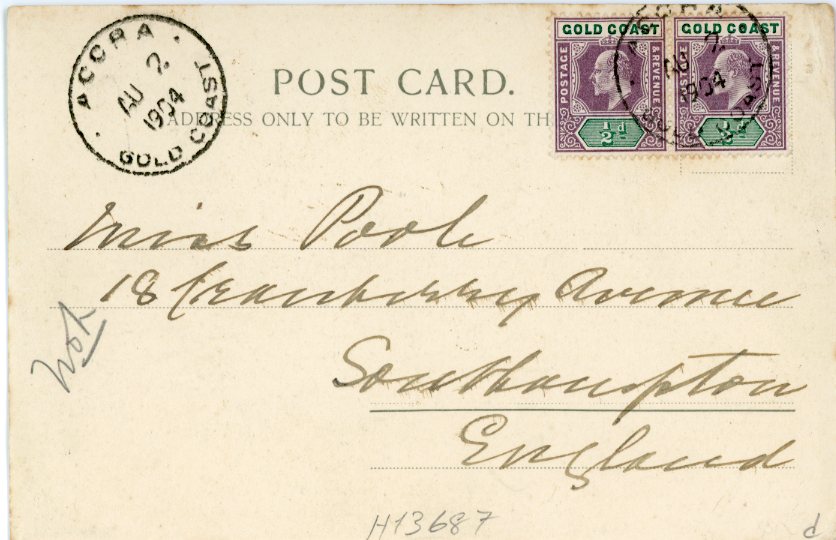 ACCRA
AU 2
1904
GOLD COAST
POST CARD.
ADDRESS ONLY TO BE WRITTEN ON TH
GOLD COAST
POSTAGE
& REVENUE
½d
GOLD COAST
POSTAGE
& REVENUE
½d
ACCRA
AU 2
1904
GOLD COAST
Miss Poole
18 Cranberry Avenue
Southampton
England
H13687
d